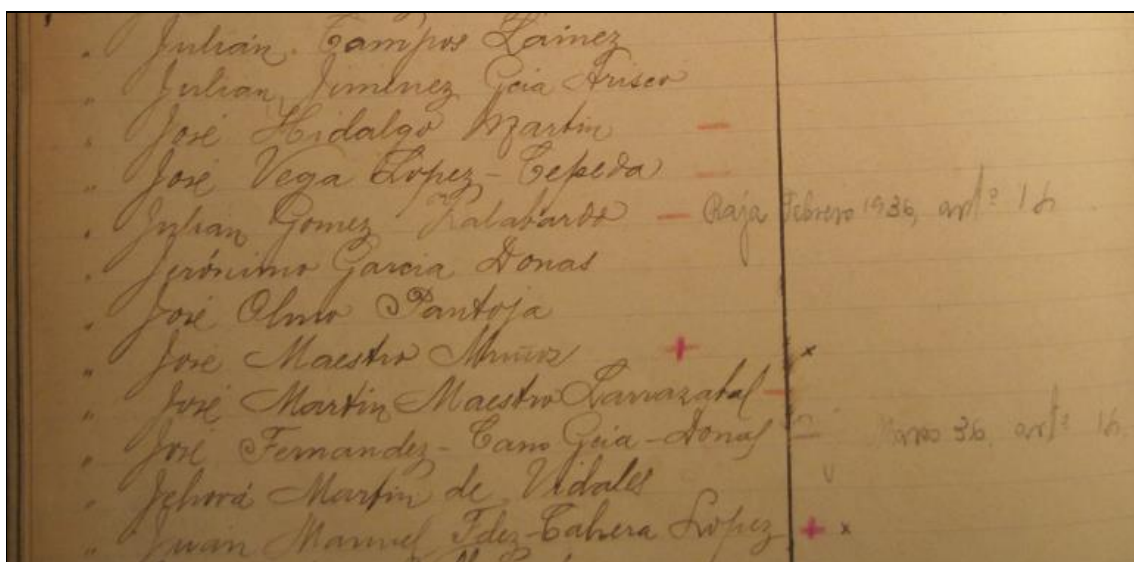 " Julián Campos Lainez
" Julian Jimenez Gcia Arisco
" José Hidalgo Martin —
" José Vega López-Cepeda —
" Julian Gomez Calabardo — Baja Febrero 1936, artº 16
" Jerónimo Garcia Donas
" José Olmo Pantoja
" José Maestro Muñoz + x
" José Martin Maestro Larrazabal —
" José Fernandez-Cano Gcia-Donas — Marzo 36, artº 16.
" Jehová Martin de Vidales
" Juan Manuel Fdez-Cabrera Lopez + x